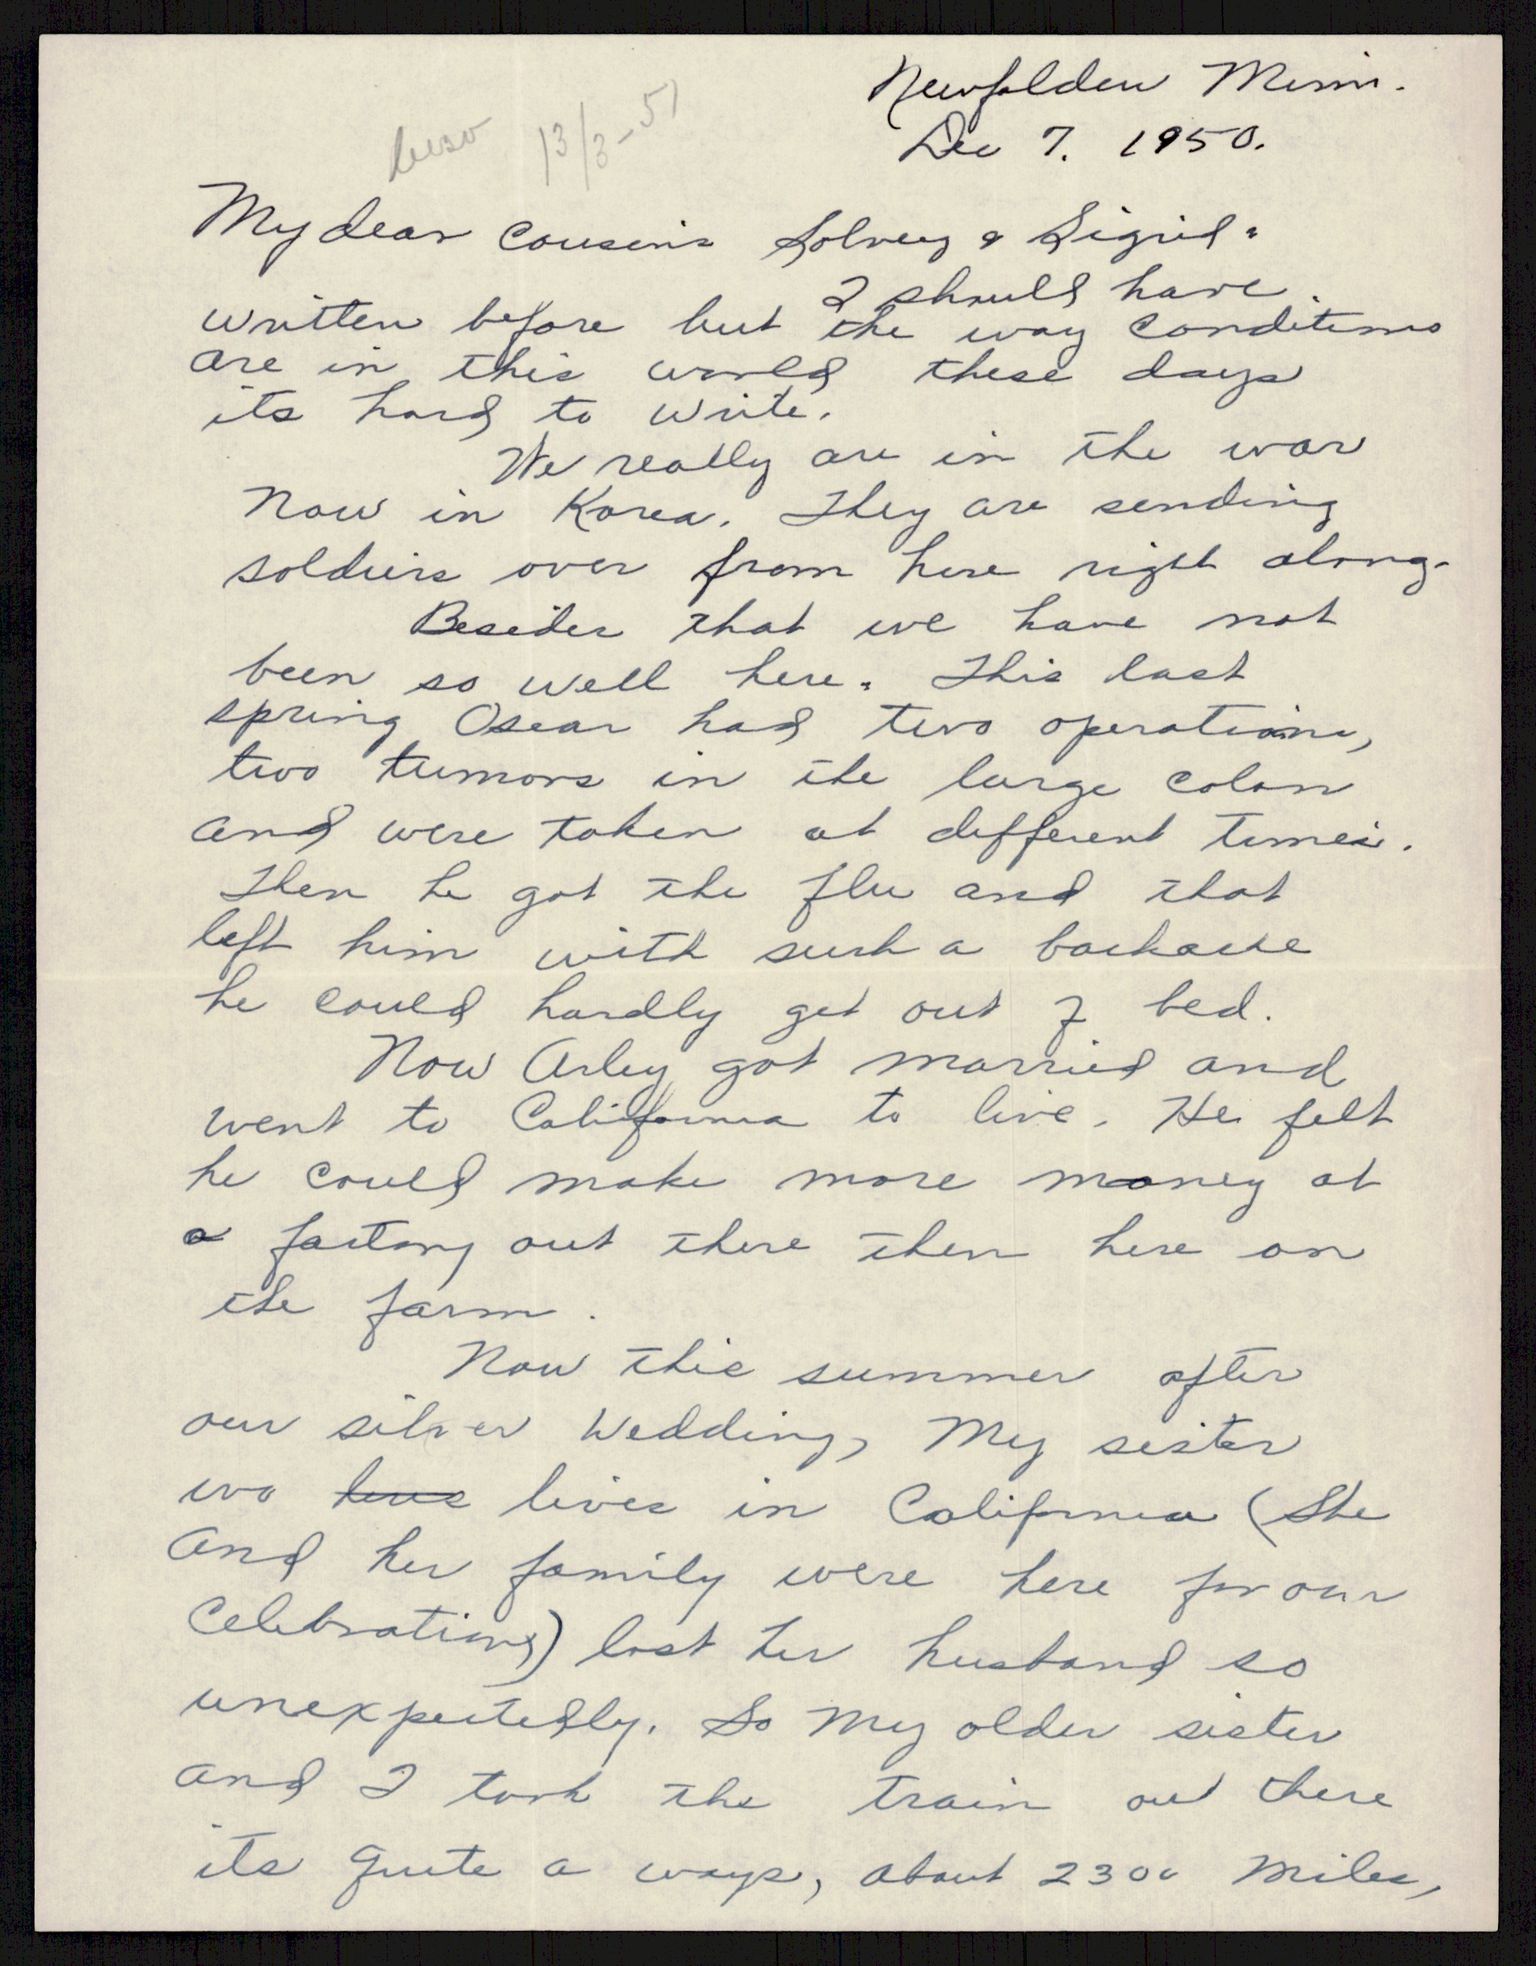 Newfolden Minn.
Dec 7. 1950.
13/3-51
My dear cousins Solveig & Sigrid.
I should have
written before but the way conditions
are in this world these days
its hard to write.
We really are in the war
Now in Korea. They are sending
soldiers over from here right along.
Besides that we have not
been so well here. This last
spring Oscar had two operations,
two tumors in the large colon
and were taken at different times.
Then he got the flu and that
left him with such a backache
he could hardly get out of bed.
Now Arley got married and
went to California to live. He felt
he could make more money at
a factory out there then here on
the farm.
Now this summer after
our silver Wedding, My sister
wo lives in California (She
and her family were here for our
Celebrations) lost her husband so
unexpectedly. So My older sister
and I took the train out there
its quite a ways, about 2300 Miles,